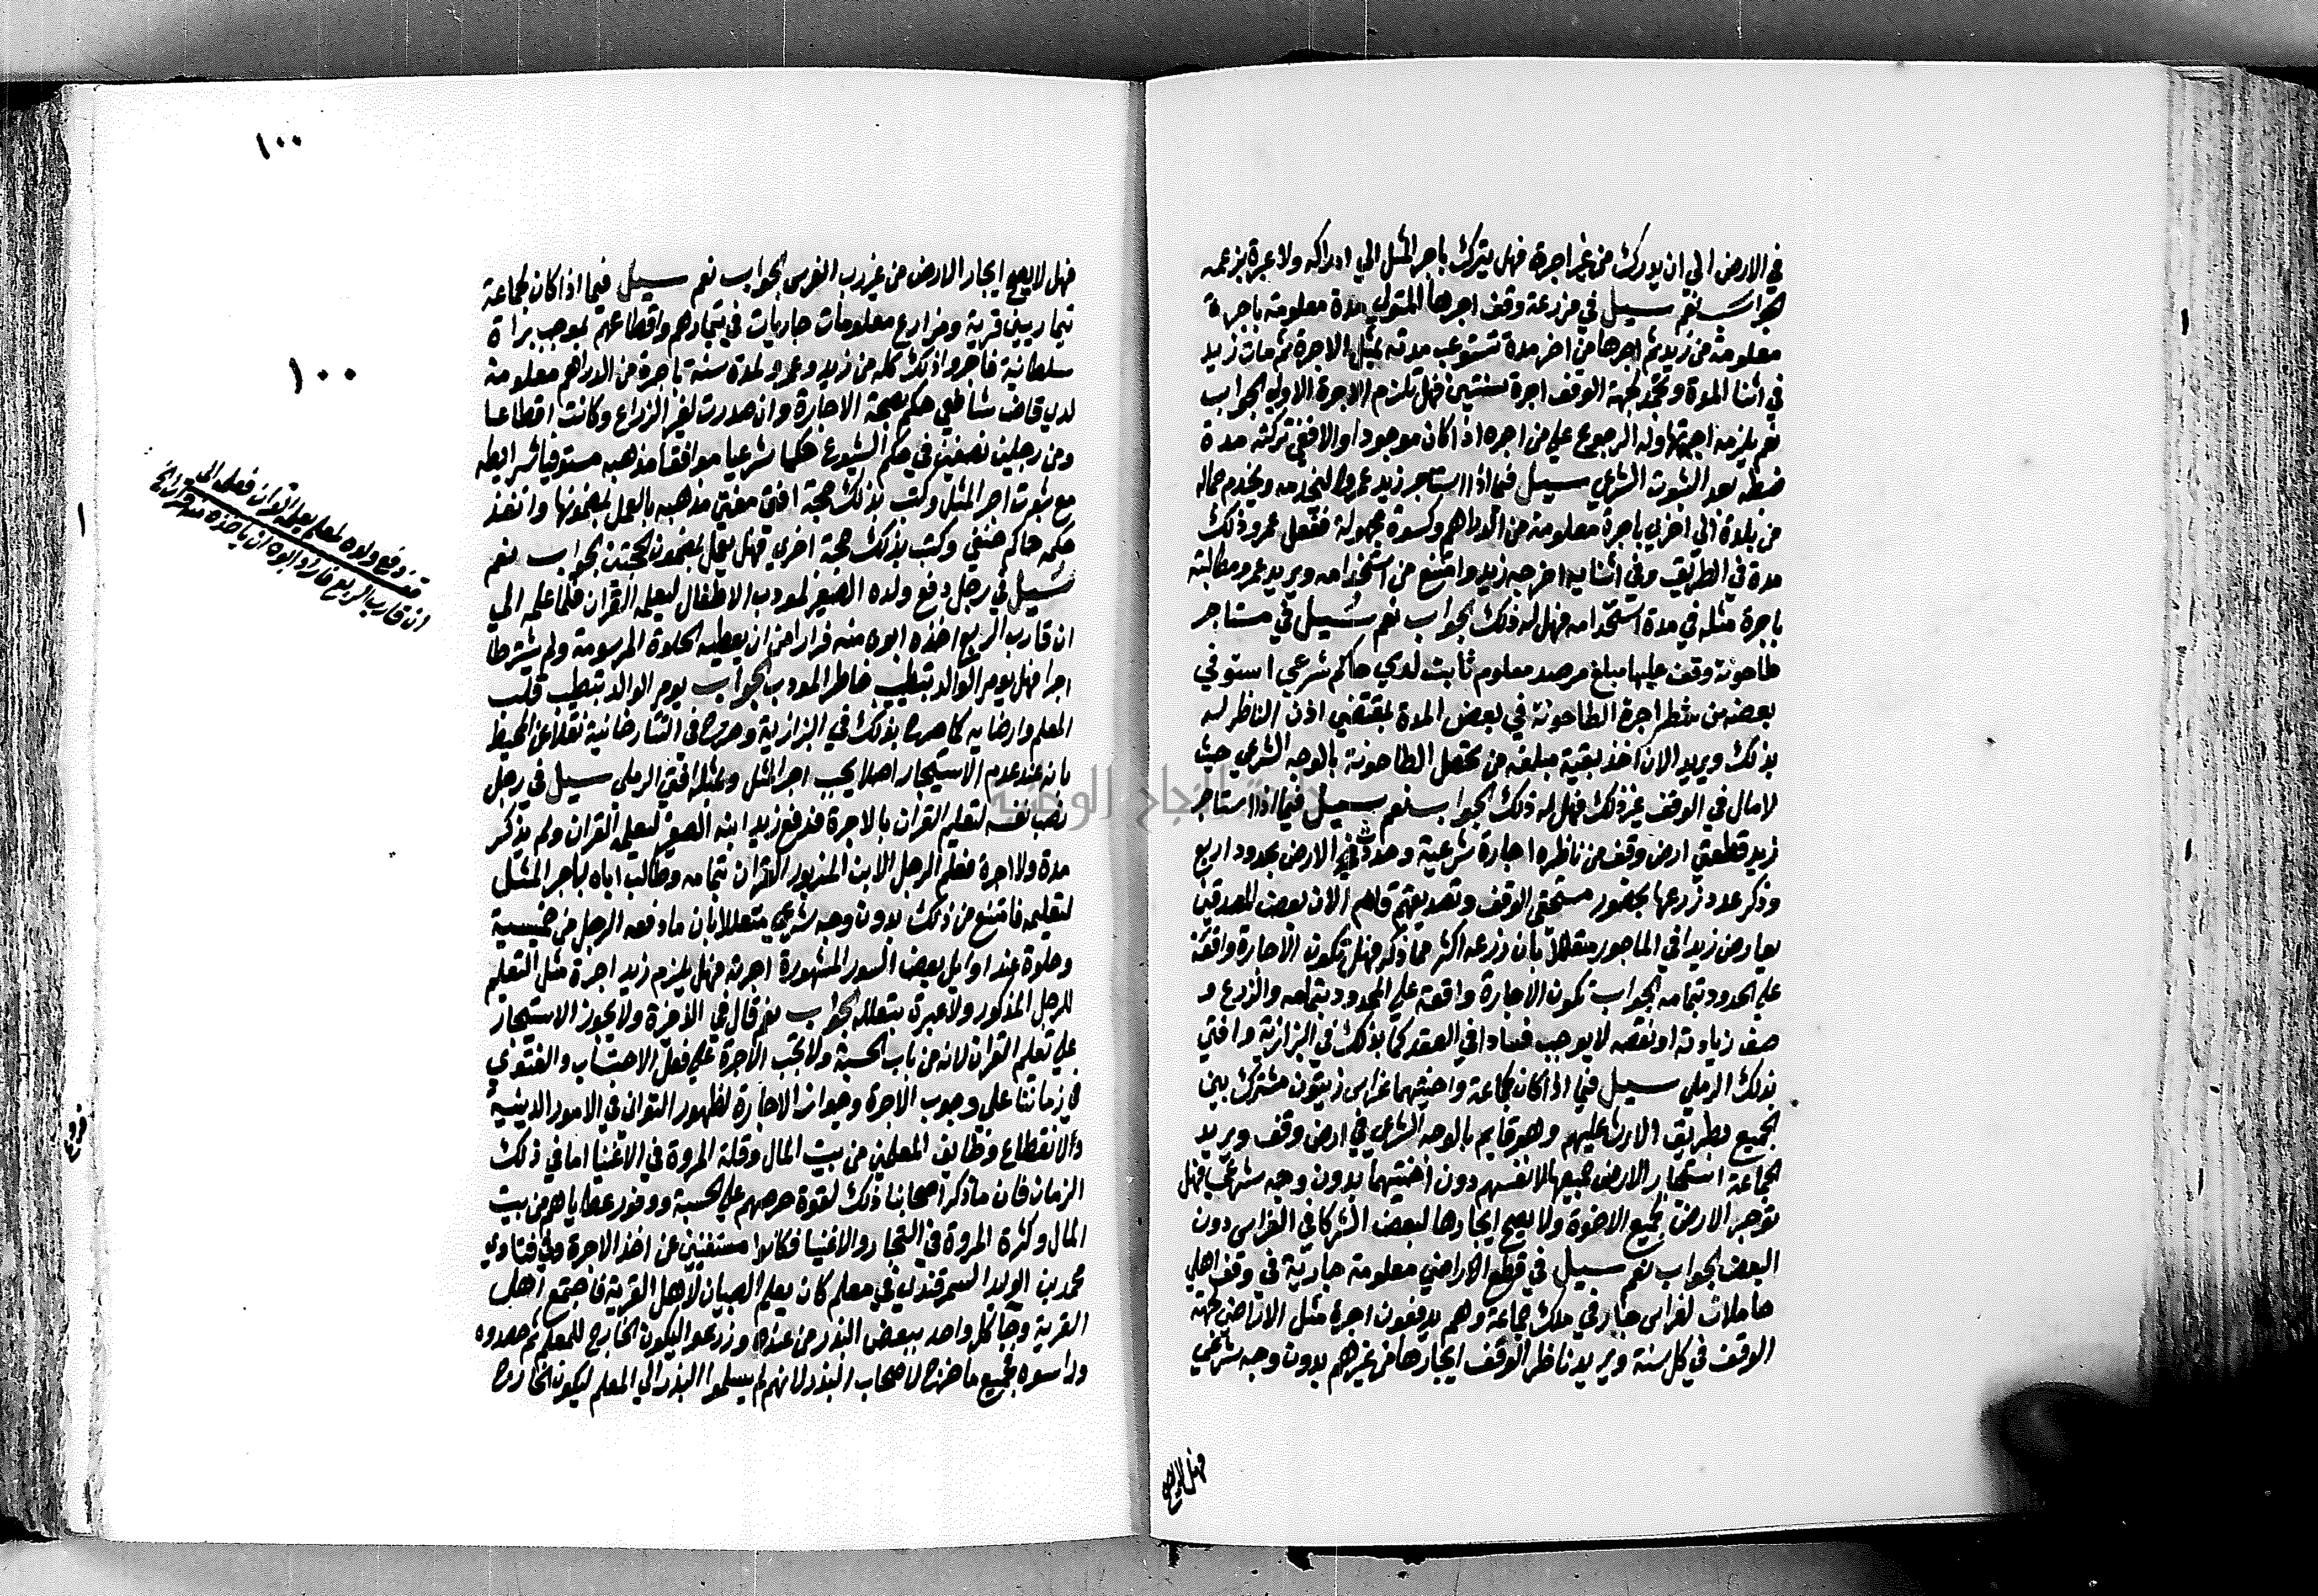 في الارض الي ان يدرك من غير اجرة فهل يترك باجر المثل الي ادراكه ولا عبرة بزعمه
الجواب نعم سيل في مزرعة وقف اجرها المتولي مدة معلومة باجرة
معلومة من زيد ثم اجرها من اخر مدة تستوعب مدته بمثل الاجرة ثم مات زيد
في اثنا المدة وتجمد لجهة الوقف اجرة سنتين فهل تلزم الاجرة الاولي الجواب
نعم يلزمه اجرتها وله الرجوع علي من اجره اذا كان موجودا والا ففي تركته مدة
ضبطه بعد الثبوت الشرعي سيل فيما اذا استاجر زيد عمروا ليخدمه ويخدم جماله
من بلدة الي اخري باجرة معلومة من الدراهم وكسوة مجهولة ففعل عمرو ذلك
مدة في الطريق وفي اثنايه اخرجه زيد وامتنع من استخدامه ويريد عمرو مطالبته
باجرة مثله في مدة استخدامه فهل له ذلك الجواب نعم سيل في مستاجر
طاحونة وقف عليها مبلغ مرصد معلوم ثابت لدي حاكم شرعي استوفي
بعضه من شطر اجرة الطاحونة في بعض المدة بمقتضي اذن الناظر له
بذلك ويريد الان اخذ بقية مبلغه من الطاحونة بالوجه الشرعي حيث
لا مال في الوقف غير ذلك فهل له ذلك الجواب نعم سيل فيما اذا استاجر
زيد قطعتي ارض وقف من ناظره اجارة شرعية وحددت الارض بحدود اربع
وذكر عدد زرعها بحضور مستحقي الوقف وتصديقهم قام الان بعض المصدقين
يعارض زيدا في الماجور متعللا بان زرعه اكثر مما ذكر فهل تكون الاجارة واقعة
علي الحدود بتمامه الجواب تكون الاجارة واقعة علي المحدود بتمامه والزرع و
صف زيادته او نقصه لا يوجب فسادا في العقد كما بذلك في البزازية وافتي
بذلك الرملي سيل فيما اذا كان لجماعة واختيهما غراس زيتون مشترك بين
الجميع بطريق الارث عليهم وهو قايم بالوجه الشرعي في ارض وقف ويريد
الجماعة استيجار الارض جميعها لانفسهم دون اختيهما بدون وجه شرعي فهل
توجر الارض لجميع الاخوة ولا يصح ايجارها لبعض الشركا في الغراس دون
البعض الجواب نعم سيل في قطع الاراضي معلومة جارية في وقف اهلي
حاملات لغراس جار في ملك جماعة وهم يدفعون اجرة مثل الاراضي لجهة
الوقف في كل سنة ويريد ناظر الوقف ايجارها من غيرهم بدون وجه شرعي
فهل لا يصح
١٠٠
١٠٠
فهل لا يصح ايجار الارض من غير رب الغرس الجواب نعم سيل فيما اذا كان لجماعة
تيماريين قرية ومزارع معلومات جاريات في تيمارهم واقطاعهم بموجب براة
سلطانية فاجروا ذلك كله من زيد وعمرو لمدة سنة باجرة من الدراهم معلومة
لدي قاض شافعي حكم بصحة الاجارة وان صدرت لغير الزراع وكانت اقطاعا
ومن رجلين نصفين في حكم الشيوع حكما شرعيا موافقا مذهبه مستوفيا شرايطه
مع ثبوت اجر المثل وكتب بذلك حجة افتي مفتي مذهبه بالعمل بمضمونها وانفذ
حكمه حاكم حنفي وكتب بذلك حجة اخري فهل يعمل بمضمون الحجتين الجواب نعم
سيل في رجل دفع ولده الصغير لمودب الاطفال ليعلمه القران فلما علمه الي
ان قارب الربع اخذه ابوه منه فرارا من ان يعطيه الحلاوة المرسومة ولم يشرطا
اجرا فهل يومر الوالد بتطييب خاطر المودب الجواب يومر الوالد بتطيب قلب
المعلم وارضايه كما صرح بذلك في البزازية وصرح في التتارخانية نقلا عن المحيط
بانه عند عدم الاستيجار اصلا يجب اجر المثل وبمثله افتي الرملي سيل في رجل
نصب نفسه لتعليم القران بالاجرة فدفع زيد ابنه الصغير ليعلمه القران ولم يذكر
مدة ولا اجرة فعلم الرجل الابن المزبور القران بتمامه وطالب اباه باجر المثل
لتعليمه فامتنع من ذلك بدون وجه شرعي متعللا بان ما دفعه الرجل من خميسية
وحلوة عند اوايل بعض السور المشهورة اجرته فهل يلزم زيد اجرة مثل التعلم
للرجل المذكور ولا عبرة بتعلله الجواب نعم قال في الذخيرة ولا يجوز الاستيجار
علي تعلم القران لانه من باب الحسبة ولا تجب الاجرة علي فعل الاحتساب والفتوي
في زماننا علي وجوب الاجرة وجواز الاجارة لظهور التواني في الامور الدينية
ولانقطاع وظايف المعلمين من بيت المال وقلة المروة في الاغنيا اما في ذلك
الزمان فان ما ذكر اصحابنا ذلك لقوة حرصهم علي الحسبة ووفور عطاياهم من بيت
المال وكثرة المروة في التجار والاغنيا فكانوا مستغنيين عن اخذ الاجرة وفي فتاوي
محمد بن الوليد السمرقندي في معلم كان يعلم الصبيان لاهل القرية فاجتمع اهل
القرية وجا كل واحد ببعض البذر من عنده وزرعوا ليكون الخارج للمعلم ثم حصدوه
وداسوه فجميع ما خرج لاصحاب البذر لانهم لم يسلموا البذر الي المعلم ليكون الخارج
دفع ولده لمعلم يعلمه القران فعلمه الي
ان قارب الربع فاراد ابوه ان ياخذه منه